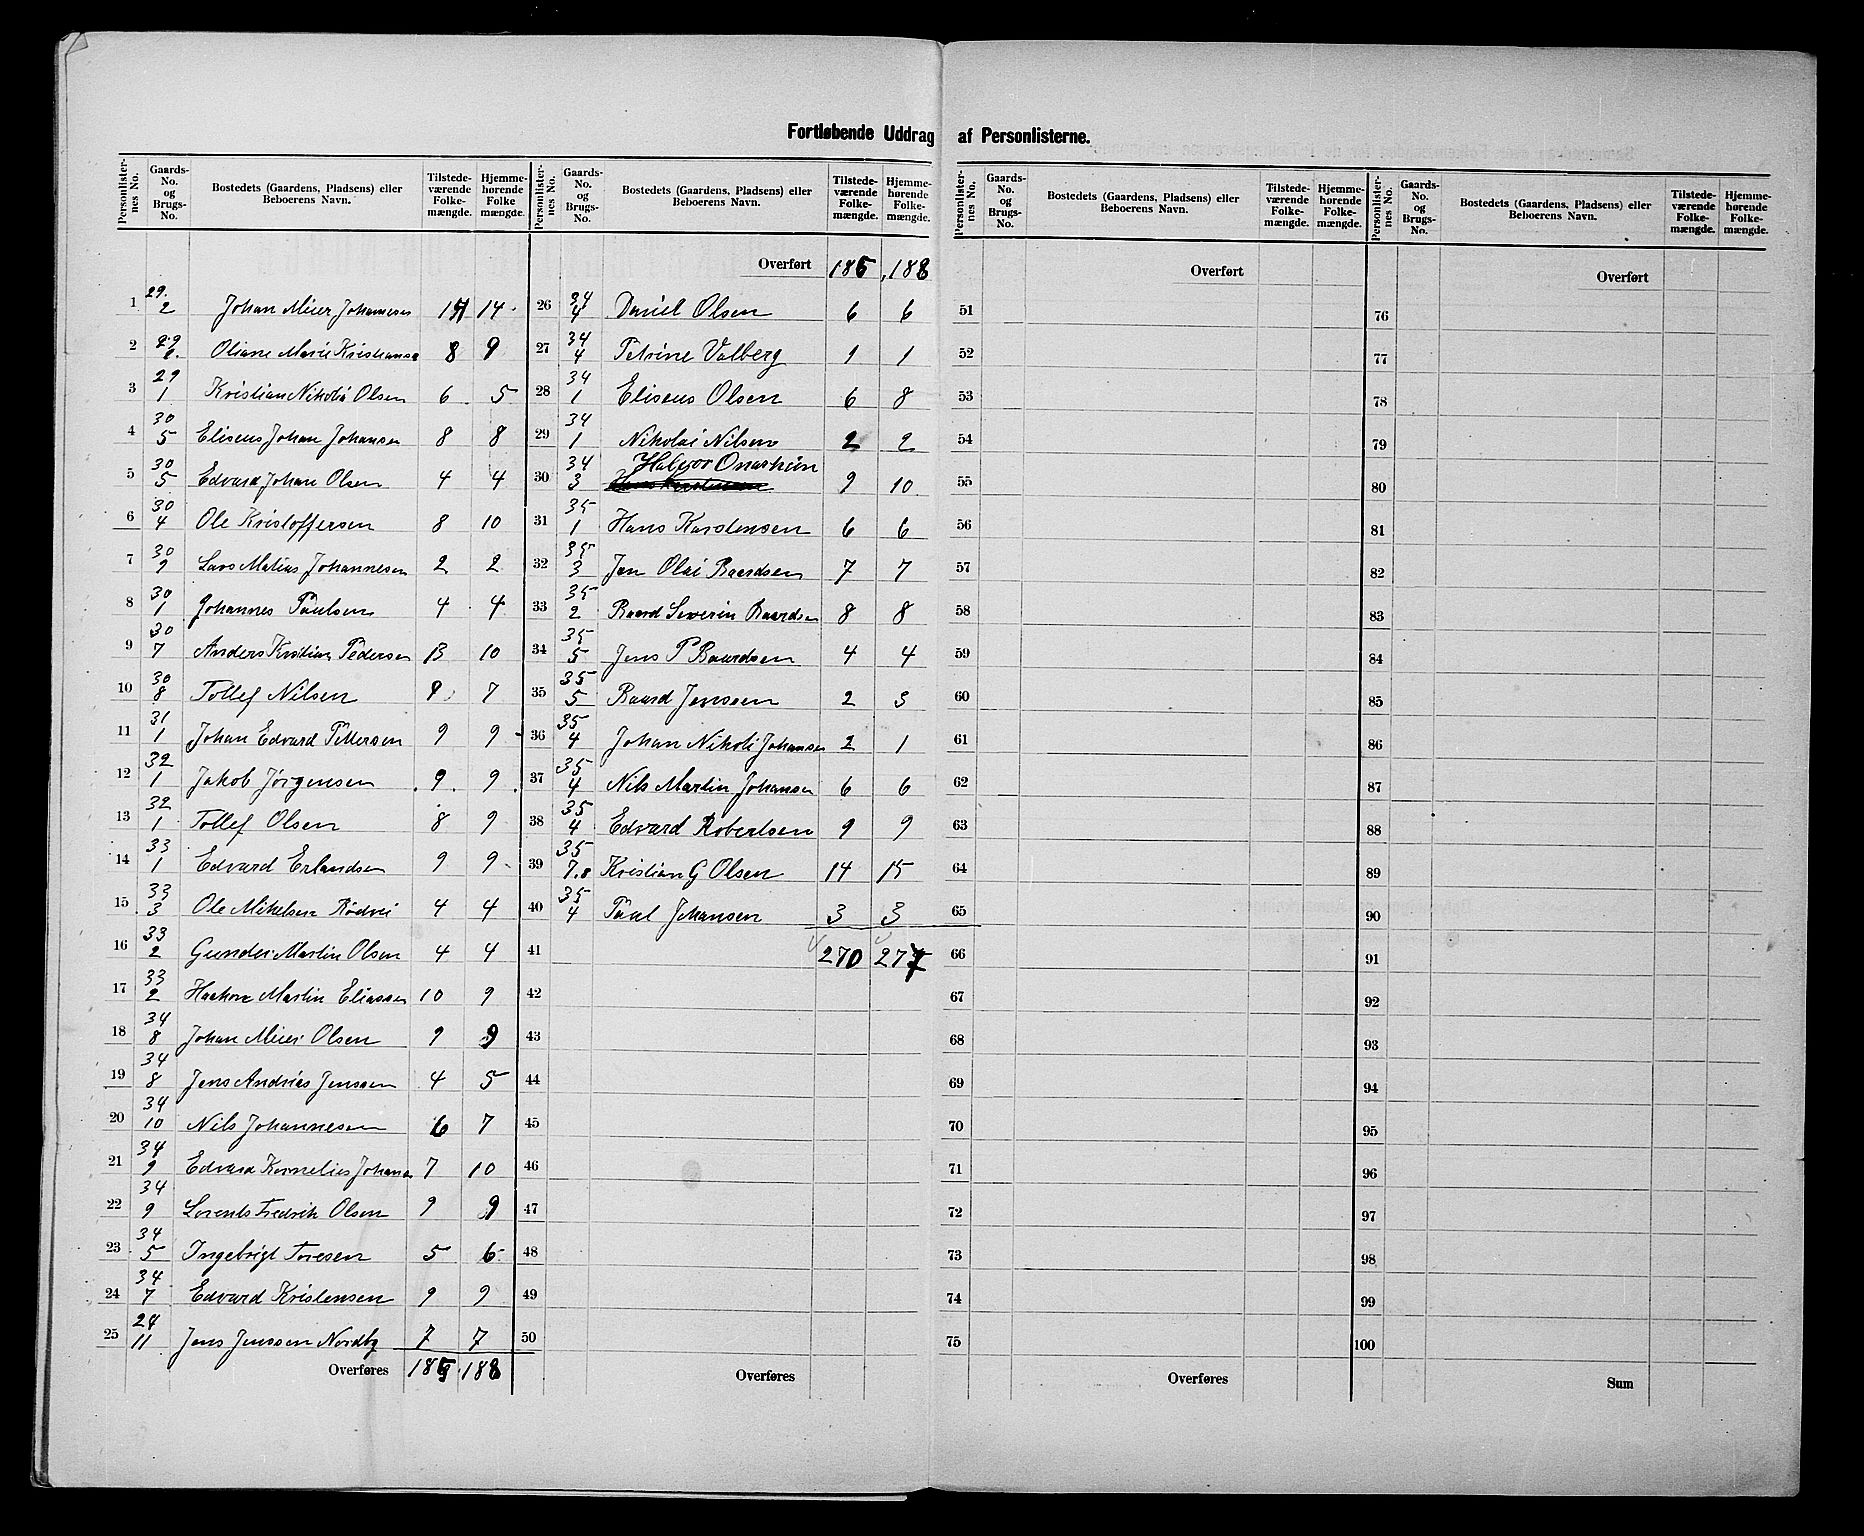 Fortløbende Uddrag af Personlisterne.
Personlister-nes No. Gaards-No. og Brugs-No. Bostedets (Gaardens, Pladsens) eller Beboerens Navn. Tilstede-værende Folke-mængde. Hjemme-hørende Folke mængde.
1 29. 2 Johan Meier Johannesen 14 14
2 29 2. Oliane Marie Kristiansen 8 9
3 29 1 Kristian Nikolai Olsen 6 5
4 30 5 Eliseus Johan Johansen 8 8
5 30 5 Edvard Johan Olsen 4 4
6 30 4 Ole Kristoffersen 8 10
7 30 9 Lars Matias Johannesen 2 2
8 30 1 Johannes Paulsen 4 4
9 30 7 Anders Kristian Pedersen 13 10
10 30 8 Tollef Nilsen 9 7
11 31 1 Johan Edvard Pettersen 9 9
12 32 1 Jakob Jørgensen 9 9
13 32 1 Tollef Olsen 8 9
14 33 1 Edvard Erlandsen 9 9
15 33 3 Ole Mikelsen Rødvei 4 4
16 33 2 Gunder Martin Olsen 4 4
17 33 2 Haakon Martin Eliassen 10 9
18 34 8 Johan Meier Olsen 9 9
19 34 8 Jens Andreas Jenssen 4 5
20 34 10 Nils Johannesen 6 7
21 34 9 Edvard Kornelius Johansen 7 10
22 34 9 Lorents Fredrik Olsen 9 9
23 34 5 Ingebrigt Toresen 5 6
24 34 7 Edvard Kristensen 9 9
25 24 11 Jens Jenssen Nordby 7 7
Overføres 185 188
Personlister-nes No. Gaards-No. og Brugs-No. Bostedets (Gaardens, Pladsens) eller Beboerens Navn. Tilstede-værende Folke-mængde. Hjemme-hørende Folke-mængde.
Overført 185 188
26 34 4 Daniel Olsen 6 6
27 34 4 Petrine Valberg 1 1
28 34 1 Eliseus Olsen 6 8
29 34 1 Nikolai Nilsen 2 2
30 34 3 Halvor Onarheim 9 10
31 35 1 Hans Karstensen 6 6
32 35 3 Jon Olai Baardsen 7 7
33 35 2 Baard Severin Baardsen 8 8
34 35 5 Jens P Baardsen 4 4
35 35 5 Baard Jenssen 2 3
36 35 4 Johan Nikolai Johansen 2 1
37 35 4 Nils Martin Johansen 6 6
38 35 4 Edvard Robertsen 9 9
39 35 7.8 Kristian G Olsen 14 15
40 35 4 Paul Johansen 3 3
41 270 277
42
43
44
45
46
47
48
49
50
Overføres
Personlister-nes No. Gaards-No. og Brugs-No. Bostedets (Gaardens, Pladsens) eller Beboerens Navn. Tilstede-værende Folke-mængde. Hjemme-hørende Folke-mængde.
Overført
51
52
53
54
55
56
57
58
59
60
61
62
63
64
65
66
67
68
69
70
71
72
73
74
75
Overføres
Personlister-nes No. Gaards-No. og Brugs-No. Bostedets (Gaardens, Pladsens) eller Beboerens Navn. Tilstede-værende Folke-mængde. Hjemme-hørende Folke-mængde.
Overført
76
77
78
79
80
81
82
83
84
85
86
87
88
89
90
91
92
93
94
95
96
97
98
99
100
Sum